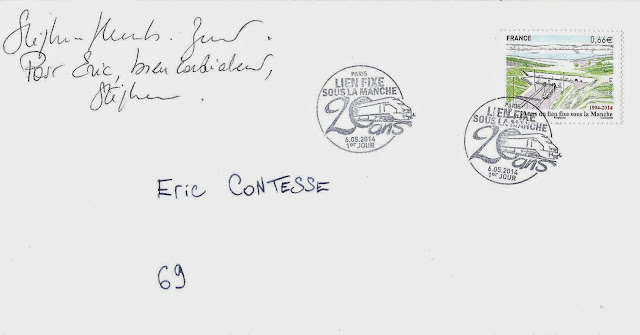 Stéphane
Pour Eric, bien cordialement,
Stéphane
FRANCE 0,66€
1994-2014
20 ans du lien fixe sous la Manche
PARIS
LIEN FIXE
SOUS LA MANCHE
20 ans
6.05.2014
1er JOUR
PARIS
LIEN FIXE
SOUS LA MANCHE
20 ans
6.05.2014
1er JOUR
Eric CONTESSE
69